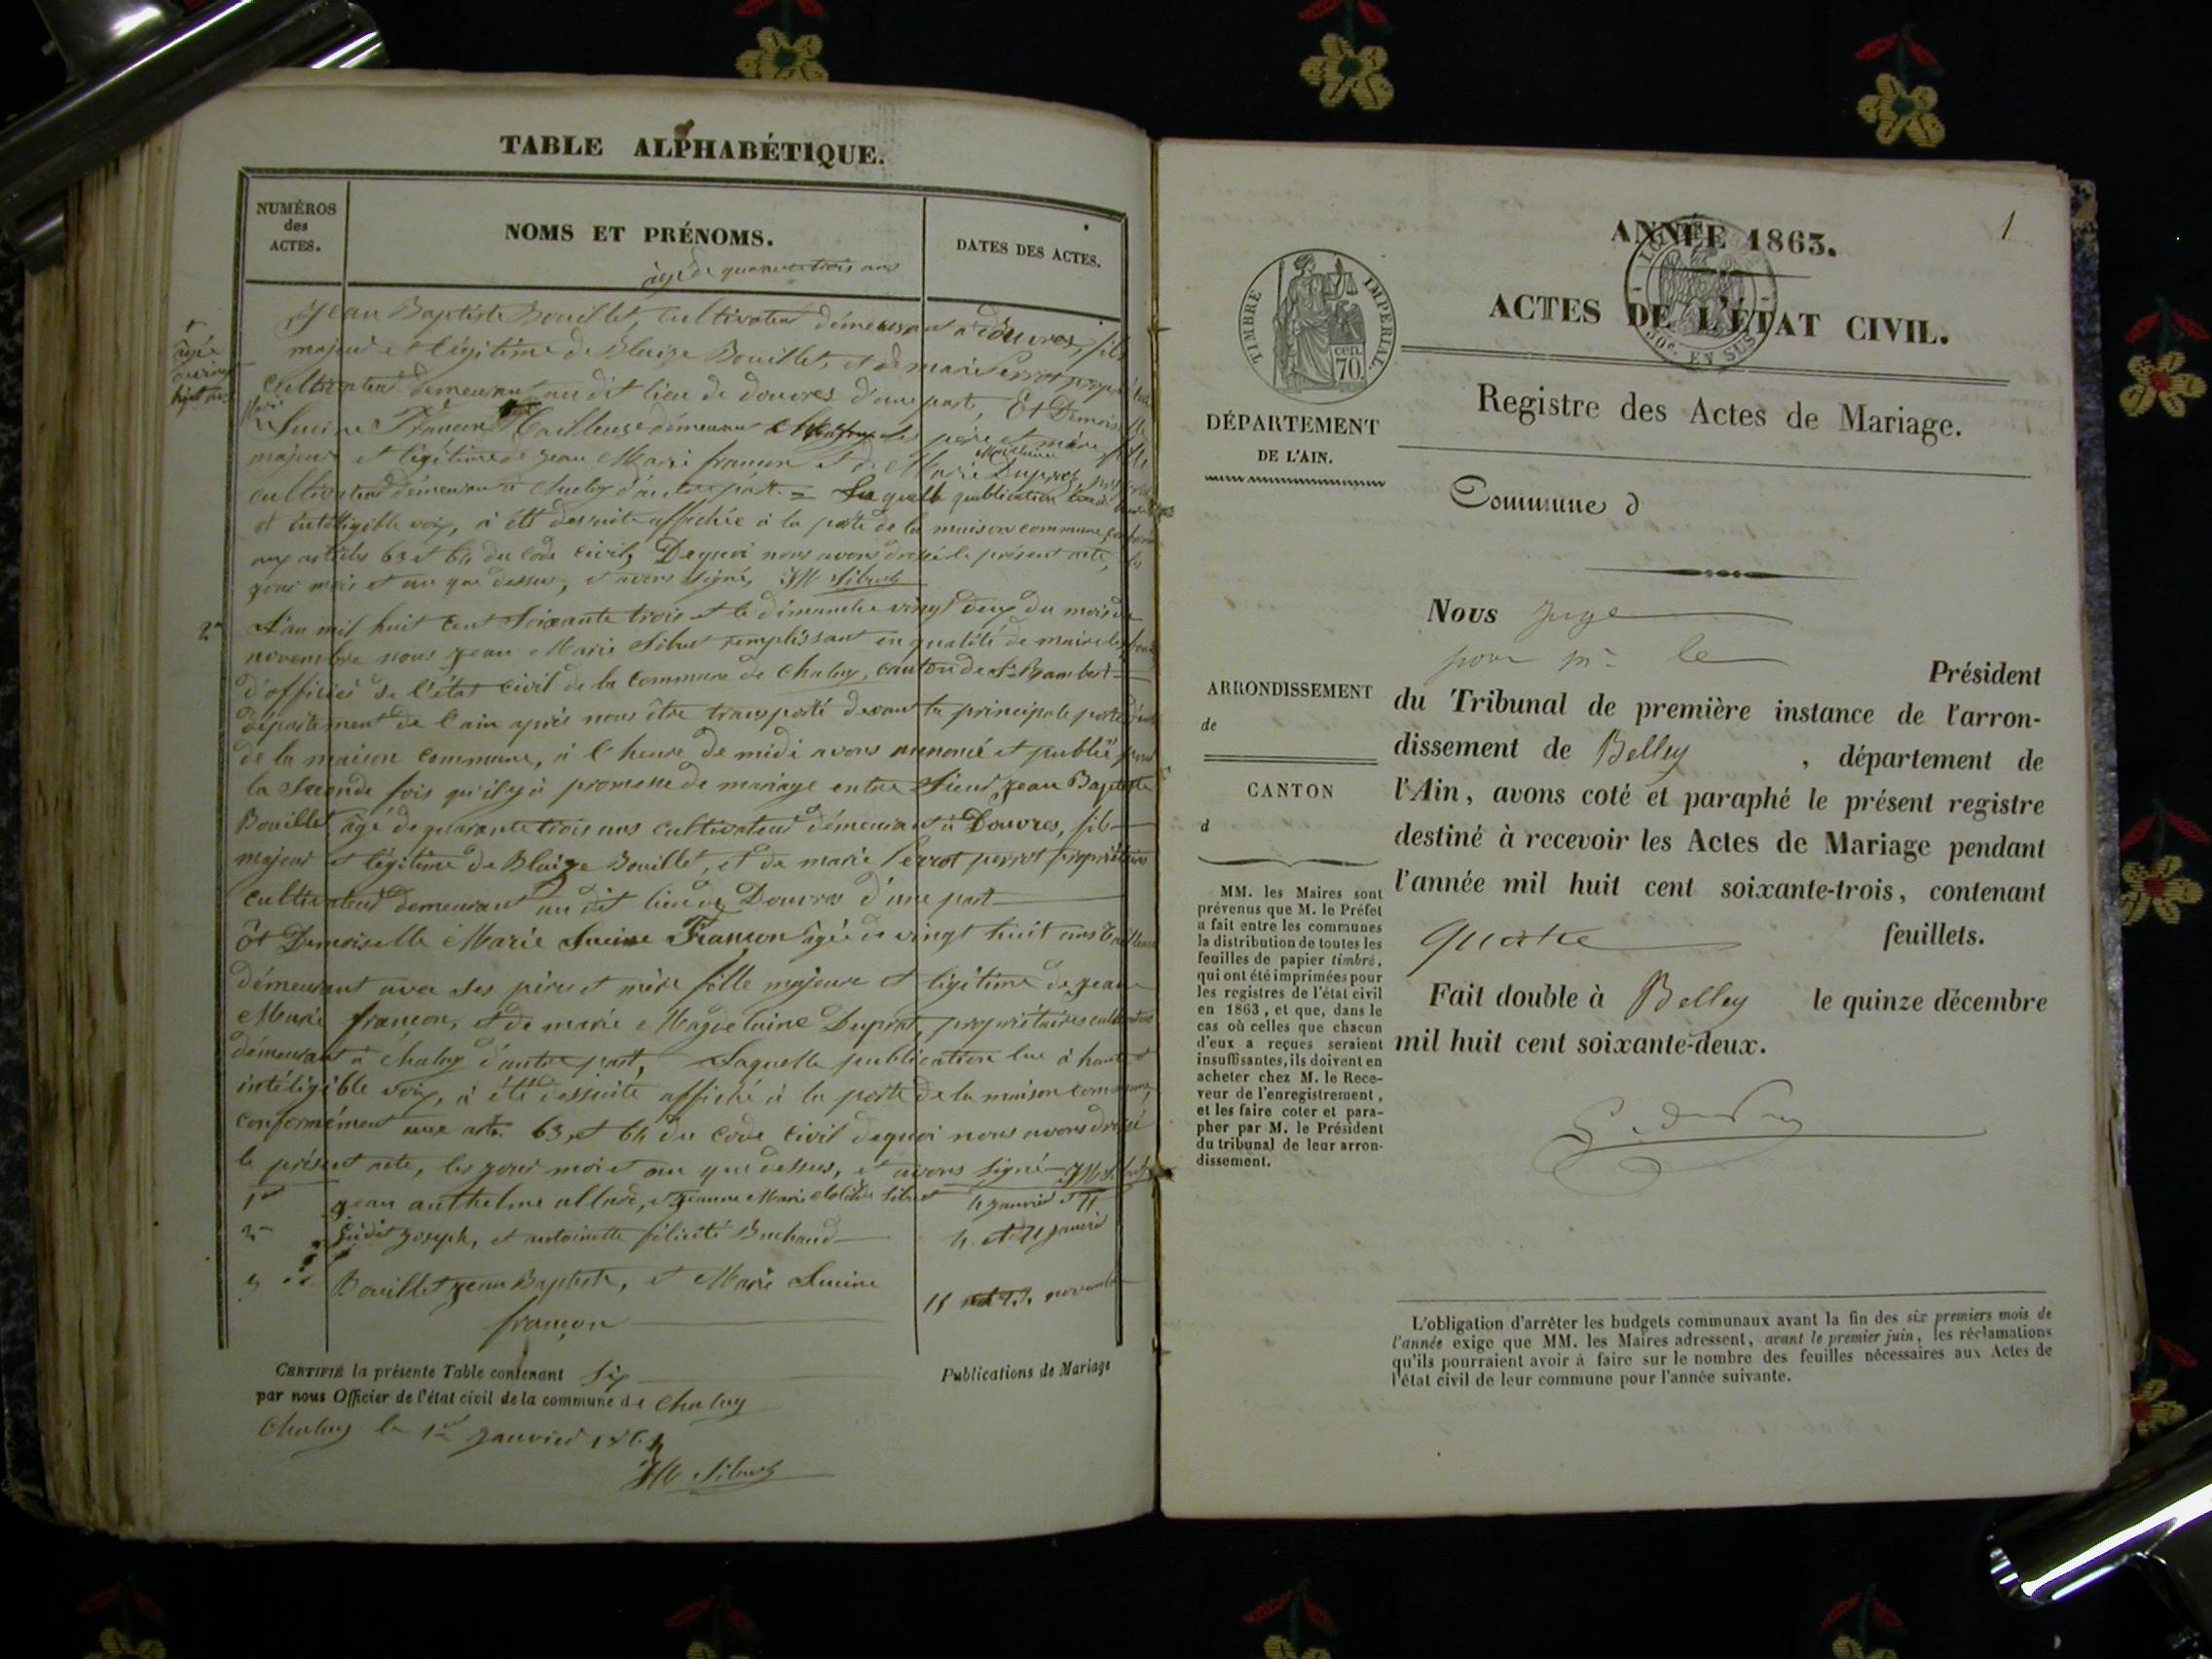 TABLE ALPHABÉTIQUE.
NUMÉROS
des
ACTES.
NOMS ET PRÉNOMS.
DATES DES ACTES.
âgé de quarante trois ans
Jean Baptiste Bouillet, cultivateur démeurant à douvres, fils
majeur et légitime de Blaize Bouillet, et de marie perrot
cultivateur demeurant au dit lieu de douvres d'une part, Et Demoiselle
Marie
françon Tailleuse démeurant père et mère, fille
majeure et légitime de jean Marie françon et de Marie Duprat,
cultivateur démeurant à Chaley d'autre part. = Laquelle publication
et intelligible voix, à été dessuite affichée à la porte de la maison commune,
aux articles 63 et 64 du Code civil, Dequoi nous avons dressé le présent acte, les
jour mois et an que dessus, et avons signé, JM Sibuet
2me
L'an mil huit cent soixante trois et le dimanche vingt deux du mois de
novembre nous jean Marie Sibuet remplissant en qualité de maire les
d'officier de l'état civil de la commune de Chaley, canton de St Rambert
département de l'ain après nous être transporté devant la principale porte
de la maison commune, à l'heure de midi avons annoncé et publié pour
la seconde fois qu'il y à promesse de mariage entre Sieur jean Baptiste
Bouillet âgé de quarante trois ans cultivateur démeurant à Douvres, fils
majeur et légitime de Blaize Bouillet, et de marie Perrot perrot propriétaires
cultivateur demeurant au dit lieu de Douvres d'une part
Et Demoiselle Marie françon âgée de vingt huit ans
démeurant avec ses père et mère fille majeure et légitime de jean
Marie françon, et de marie Magdelaine Duprat, propriétaires cultivateurs
démeurant à chaley d'autre part, Laquelle publication lue à haute et
intéligible voix, à été dessuite affiché à la porte de la maison commune,
conformément aux arts. 63 et 64 du code civil dequoi nous avons dressé
le présent acte, les jour mois et an que dessus, et avons signé JM Sibuet
jean anthelme allard, et jeanne Marie Sibuet 4 janvier et 11
joseph, et antoinette félicité Buchard 4 et 11 janvier
Bouillet jean Baptiste, et Marie
françon
15 novembre
CERTIFIÉ la présente Table contenant Six Publications de Mariage
par nous Officier de l'état civil de la commune de Chaley
Chaley le 1er janvier 1864
JM Sibuet
1
ANNÉE 1863.
TIMBRE IMPÉRIAL
70 cen.
50c. EN SUS
ACTES DE L'ÉTAT CIVIL.
DÉPARTEMENT
DE L'AIN.
Registre des Actes de Mariage.
Commune d
Nous juge
pour le
Président
ARRONDISSEMENT
de
CANTON
d
du Tribunal de première instance de l'arron-
dissement de Belley , département de
l'Ain, avons coté et paraphé le présent registre
destiné à recevoir les Actes de Mariage pendant
l'année mil huit cent soixante-trois, contenant
quatre feuillets.
Fait double à Belley le quinze décembre
mil huit cent soixante-deux.
MM. les Maires sont
prévenus que M. le Préfet
a fait entre les communes
la distribution de toutes les
feuilles de papier timbré,
qui ont été imprimées pour
les registres de l'état civil
en 1863, et que, dans le
cas où celles que chacun
d'eux a reçues seraient
insuffisantes, ils doivent en
acheter chez M. le Rece-
veur de l'enregistrement,
et les faire coter et para-
pher par M. le Président
du tribunal de leur arron-
dissement.
L'obligation d'arrêter les budgets communaux avant la fin des six premiers mois de
l'année exige que MM. les Maires adressent, avant le premier juin, les réclamations
qu'ils pourraient avoir à faire sur le nombre des feuilles nécessaires aux Actes de
l'état civil de leur commune pour l'année suivante.